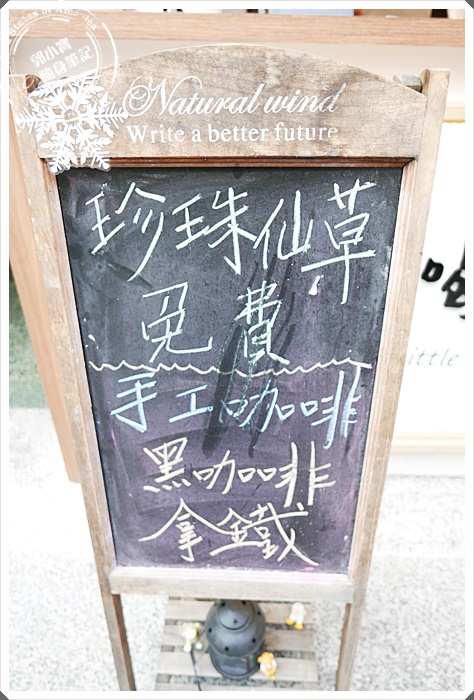 郭小寶
隨身筆記
Natural wind
Write a better future
珍珠仙草
免費
手工咖啡
黑咖啡
拿鐵
ittle